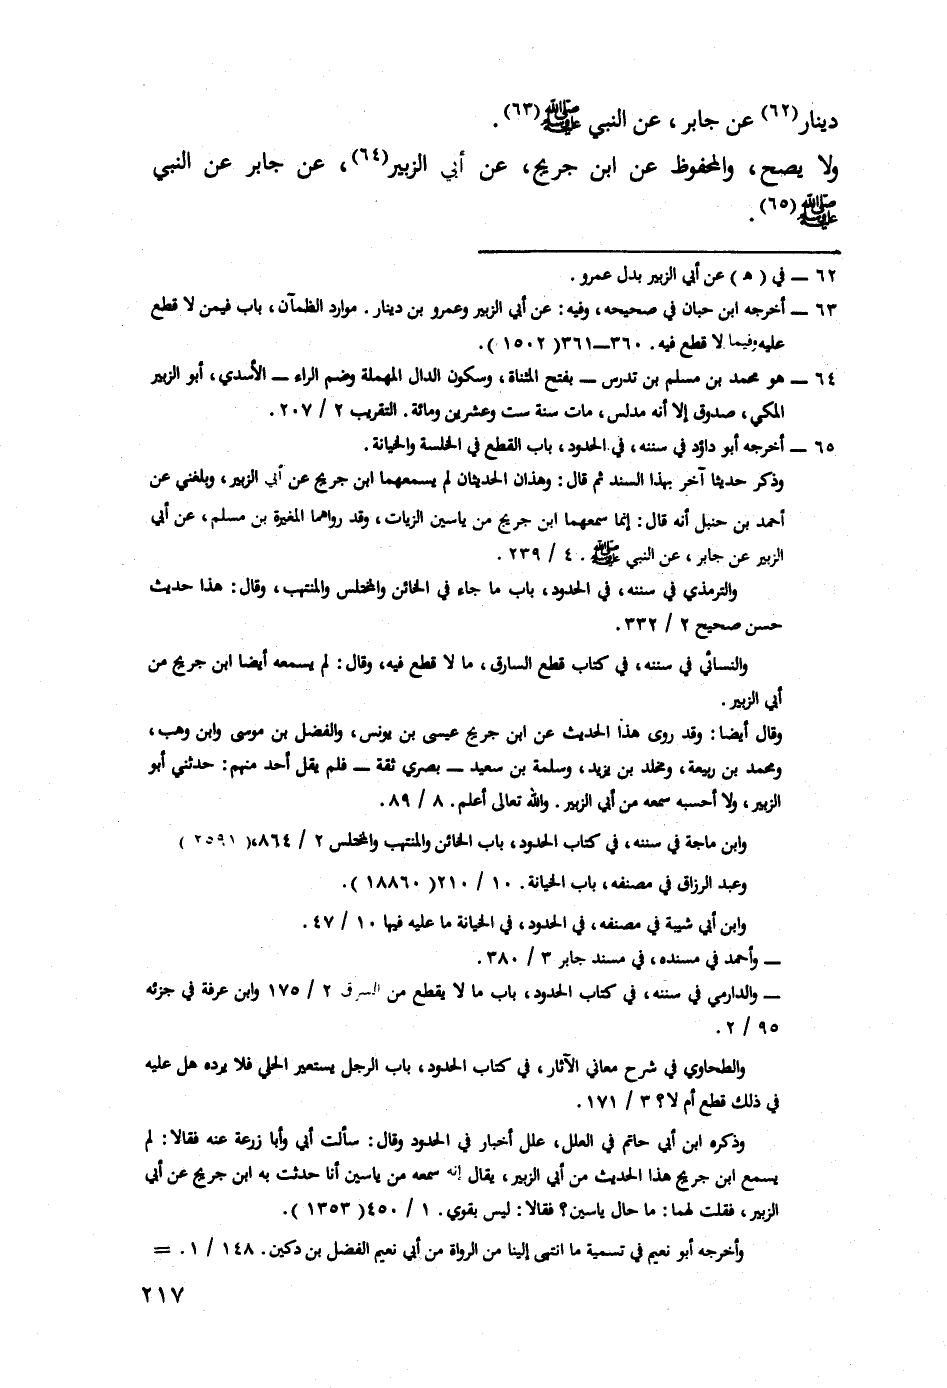 دينار(٦٢) عن جابر ، عن النبي ﷺ(٦٣).
ولا يصح ، والمحفوظ عن ابن جريج، عن أبي الزبير(٦٤)، عن جابر عن النبي
ﷺ(٦٥).
٦٢ ــ في ( هـ ) عن أبي الزبير بدل عمرو .
٦٣ ــ أخرجه ابن حبان في صحيحه، وفيه: عن أبي الزبير وعمرو بن دينار . موارد الظمآن، باب فيمن لا قطع
عليه وفيما لا قطع فيه. ٣٦٠ــ٣٦١( ١٥٠٢ ).
٦٤ ــ هو محمد بن مسلم بن تدرس ــ بفتح المثناة، وسكون الدال المهملة وضم الراء ــ الأسدي، أبو الزبير
المكي، صدوق إلا أنه مدلس، مات سنة ست وعشرين ومائة. التقريب ٢ / ٢٠٧.
٦٥ ــ أخرجه أبو داؤد في سننه، في الحدود، باب القطع في الخلسة والخيانة.
وذكر حديثا آخر بهذا السند ثم قال: وهذان الحديثان لم يسمعهما ابن جريج عن أبي الزبير، وبلغني عن
أحمد بن حنبل أنه قال: إنما سمعهما ابن جريج من ياسين الزيات، وقد رواهما المغيرة بن مسلم، عن أبي
الزبير عن جابر، عن النبي ﷺ . ٤ / ٢٣٩.
والترمذي في سننه، في الحدود، باب ما جاء في الخائن والمختلس والمنتهب، وقال: هذا حديث
حسن صحيح ٢ / ٣٣٢.
والنسائي في سننه، في كتاب قطع السارق، ما لا قطع فيه، وقال: لم يسمعه أيضا ابن جريج من
أبي الزبير.
وقال أيضا: وقد روى هذا الحديث عن ابن جريج عيسى بن يونس، والفضل بن موسى وابن وهب،
ومحمد بن ربيعة، ومخلد بن يزيد، وسلمة بن سعيد ــ بصري ثقة ــ فلم يقل أحد منهم: حدثني أبو
الزبير، ولا أحسبه سمعه من أبي الزبير. والله تعالى أعلم. ٨ / ٨٩.
وابن ماجة في سننه، في كتاب الحدود، باب الخائن والمنتهب والمختلس ٢ / ٨٦٤،( ٢٥٩١ )
وعبد الرزاق في مصنفه، باب الخيانة. ١٠ / ٢١٠( ١٨٨٦٠ ).
وابن أبي شيبة في مصنفه، في الحدود، في الخيانة ما عليه فيها ١٠ / ٤٧.
ــ وأحمد في مسنده، في مسند جابر ٣ / ٣٨٠.
ــ والدارمي في سننه، في كتاب الحدود، باب ما لا يقطع من السرق ٢ / ١٧٥ وابن عرفة في جزئه
٩٥ / ٢.
والطحاوي في شرح معاني الآثار، في كتاب الحدود، باب الرجل يستعير الحلي فلا يرده هل عليه
في ذلك قطع أم لا؟ ٣ / ١٧١.
وذكره ابن أبي حاتم في العلل، علل أخبار في الحدود وقال: سألت أبي وأبا زرعة عنه فقالا: لم
يسمع ابن جريج هذا الحديث من أبي الزبير، يقال إنه سمعه من ياسين أنا حدثت به ابن جريج عن أبي
الزبير، فقلت لهما: ما حال ياسين؟ فقالا: ليس بقوي. ١ / ٤٥٠( ١٣٥٣ ).
وأخرجه أبو نعيم في تسمية ما انتهى إلينا من الرواة من أبي نعيم الفضل بن دكين. ١٤٨ / ١. =
٢١٧